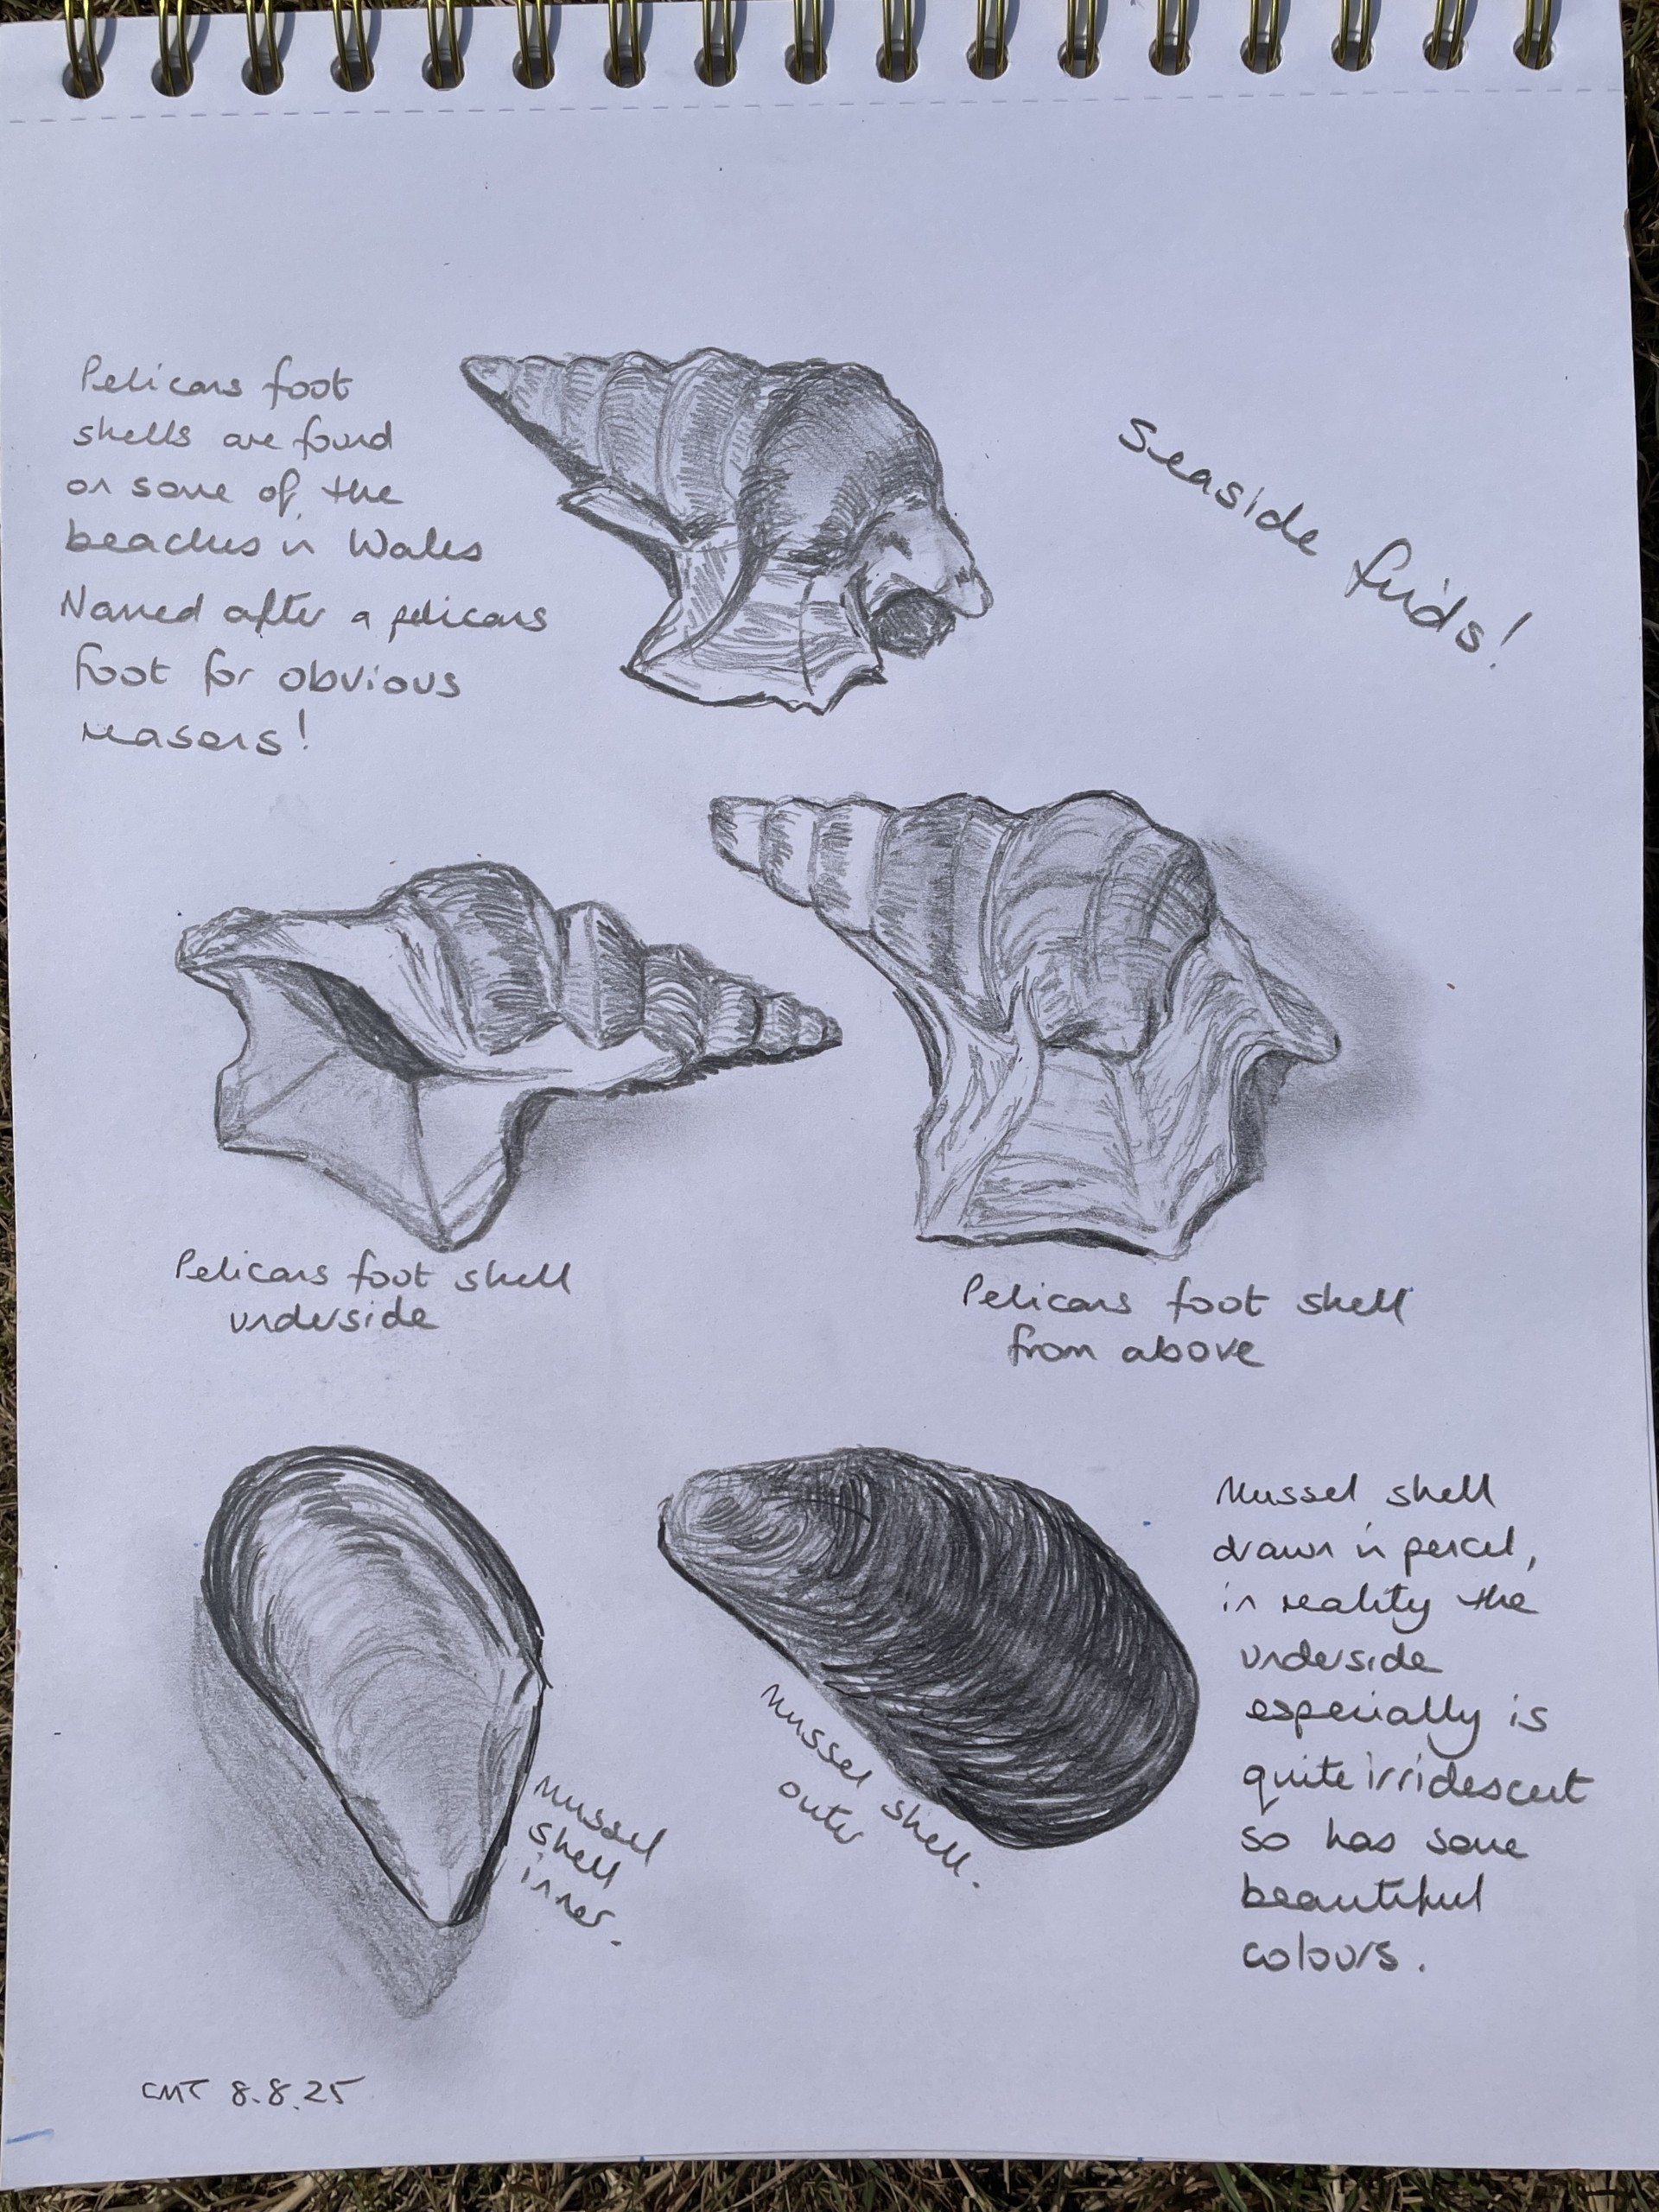 Pelicans foot
shells are found
on some of the
beaches in Wales
Named after a pelicans
foot for obvious
reasons!
Seaside finds!
Pelicans foot shell
underside
Pelicans foot shell
from above
Mussel
shell
inner.
Mussel shell.
outer
Mussel shell
drawn in pencil,
in reality the
underside
especially is
quite irridescent
so has some
beautiful
colours.
CMT 8.8.25